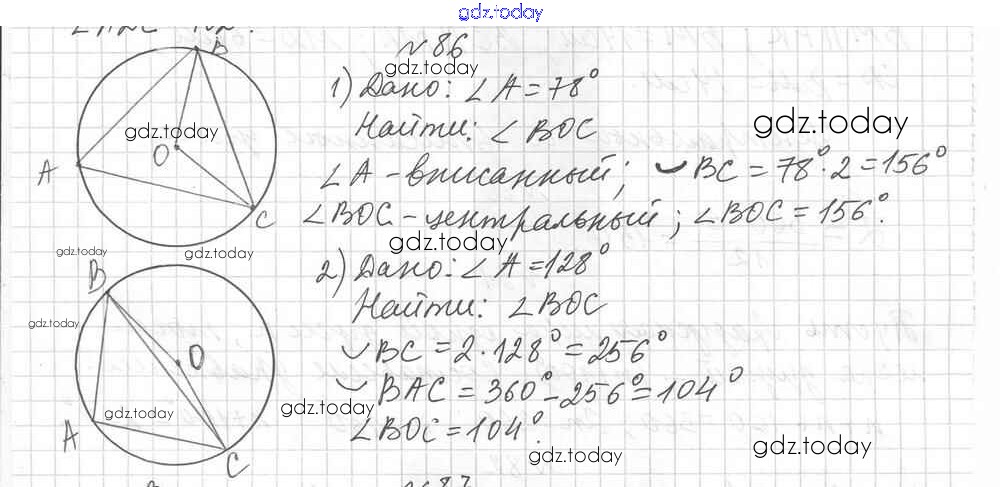 gdz.today
№86
1) Дано: ∠A = 78°
Найти: ∠BOC
∠A - вписанный; ◡BC = 78°·2 = 156°
∠BOC - центральный; ∠BOC = 156°.
2) Дано: ∠A = 128°
Найти: ∠BOC
◡BC = 2·128° = 256°
◡BAC = 360° - 256° = 104°
∠BOC = 104°.
B
A
O
C
B
O
A
C
gdz.today
gdz.today
gdz.today
gdz.today
gdz.today
gdz.today
gdz.today
gdz.today
gdz.today
gdz.today
gdz.today
№87